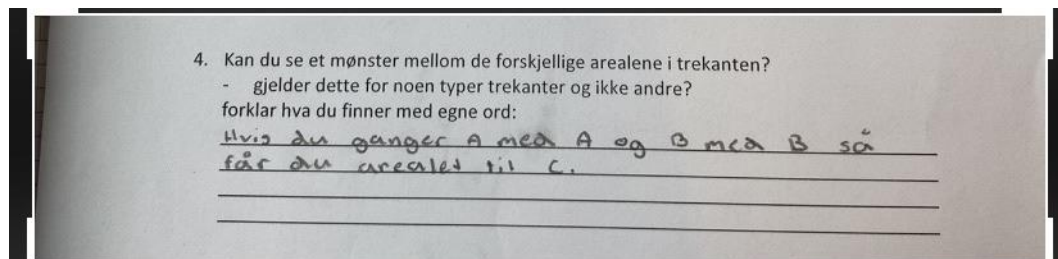 4. Kan du se et mønster mellom de forskjellige arealene i trekanten?
- gjelder dette for noen typer trekanter og ikke andre?
forklar hva du finner med egne ord:
Hvis du ganger A med A og B med B så
får du arealet til C.